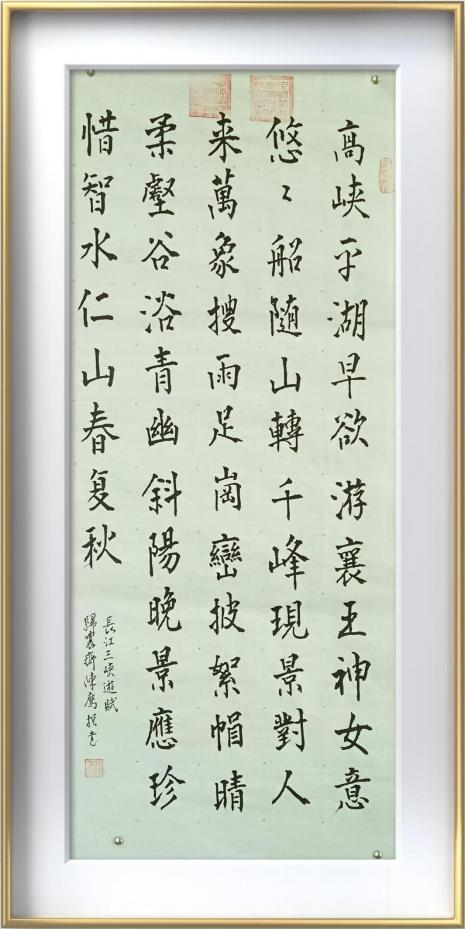 高峡平湖早欲游襄王神女意
悠〻船随山轉千峰現景對人
来萬象搜雨足崗巒披絮帽晴
柔壑谷浴青幽斜陽晚景應珍
惜智水仁山春复秋
長江三峡遊賦
歸農齋陳鷹撰書